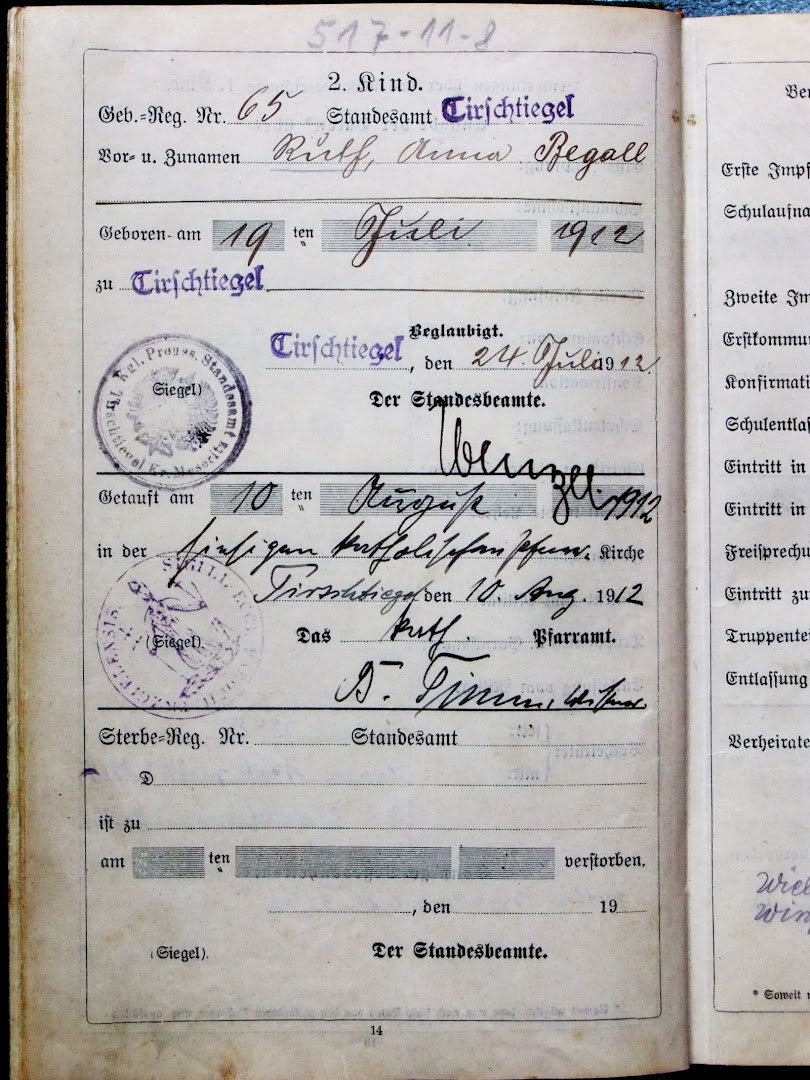 517-11-8
2. Kind.
Geb.-Reg. Nr. 65 Standesamt Tirschtiegel
Vor- u. Zunamen Ruth, Anna Begall
Geboren am 19 ten Juli 1912
zu Tirschtiegel
Beglaubigt.
Tirschtiegel, den 24. Juli 1912.
Kgl. Preuss. Standesamt
Tirschtiegel Kr. Meseritz
(Siegel)
Der Standesbeamte.
Wenzel.
Getauft am 10 ten August 1912
in der hiesigen katholischen Pfarr. Kirche
Tirschtiegel den 10. Aug. 1912
SIGILL. ECCL.
(Siegel). Das kath. Pfarramt.
Sterbe-Reg. Nr. Standesamt
D
ist zu
am ten verstorben.
, den 19
(Siegel). Der Standesbeamte.
14
Erste
Zweite
Eintritt in
Eintritt in
Eintritt
Entlassung
* Soweit